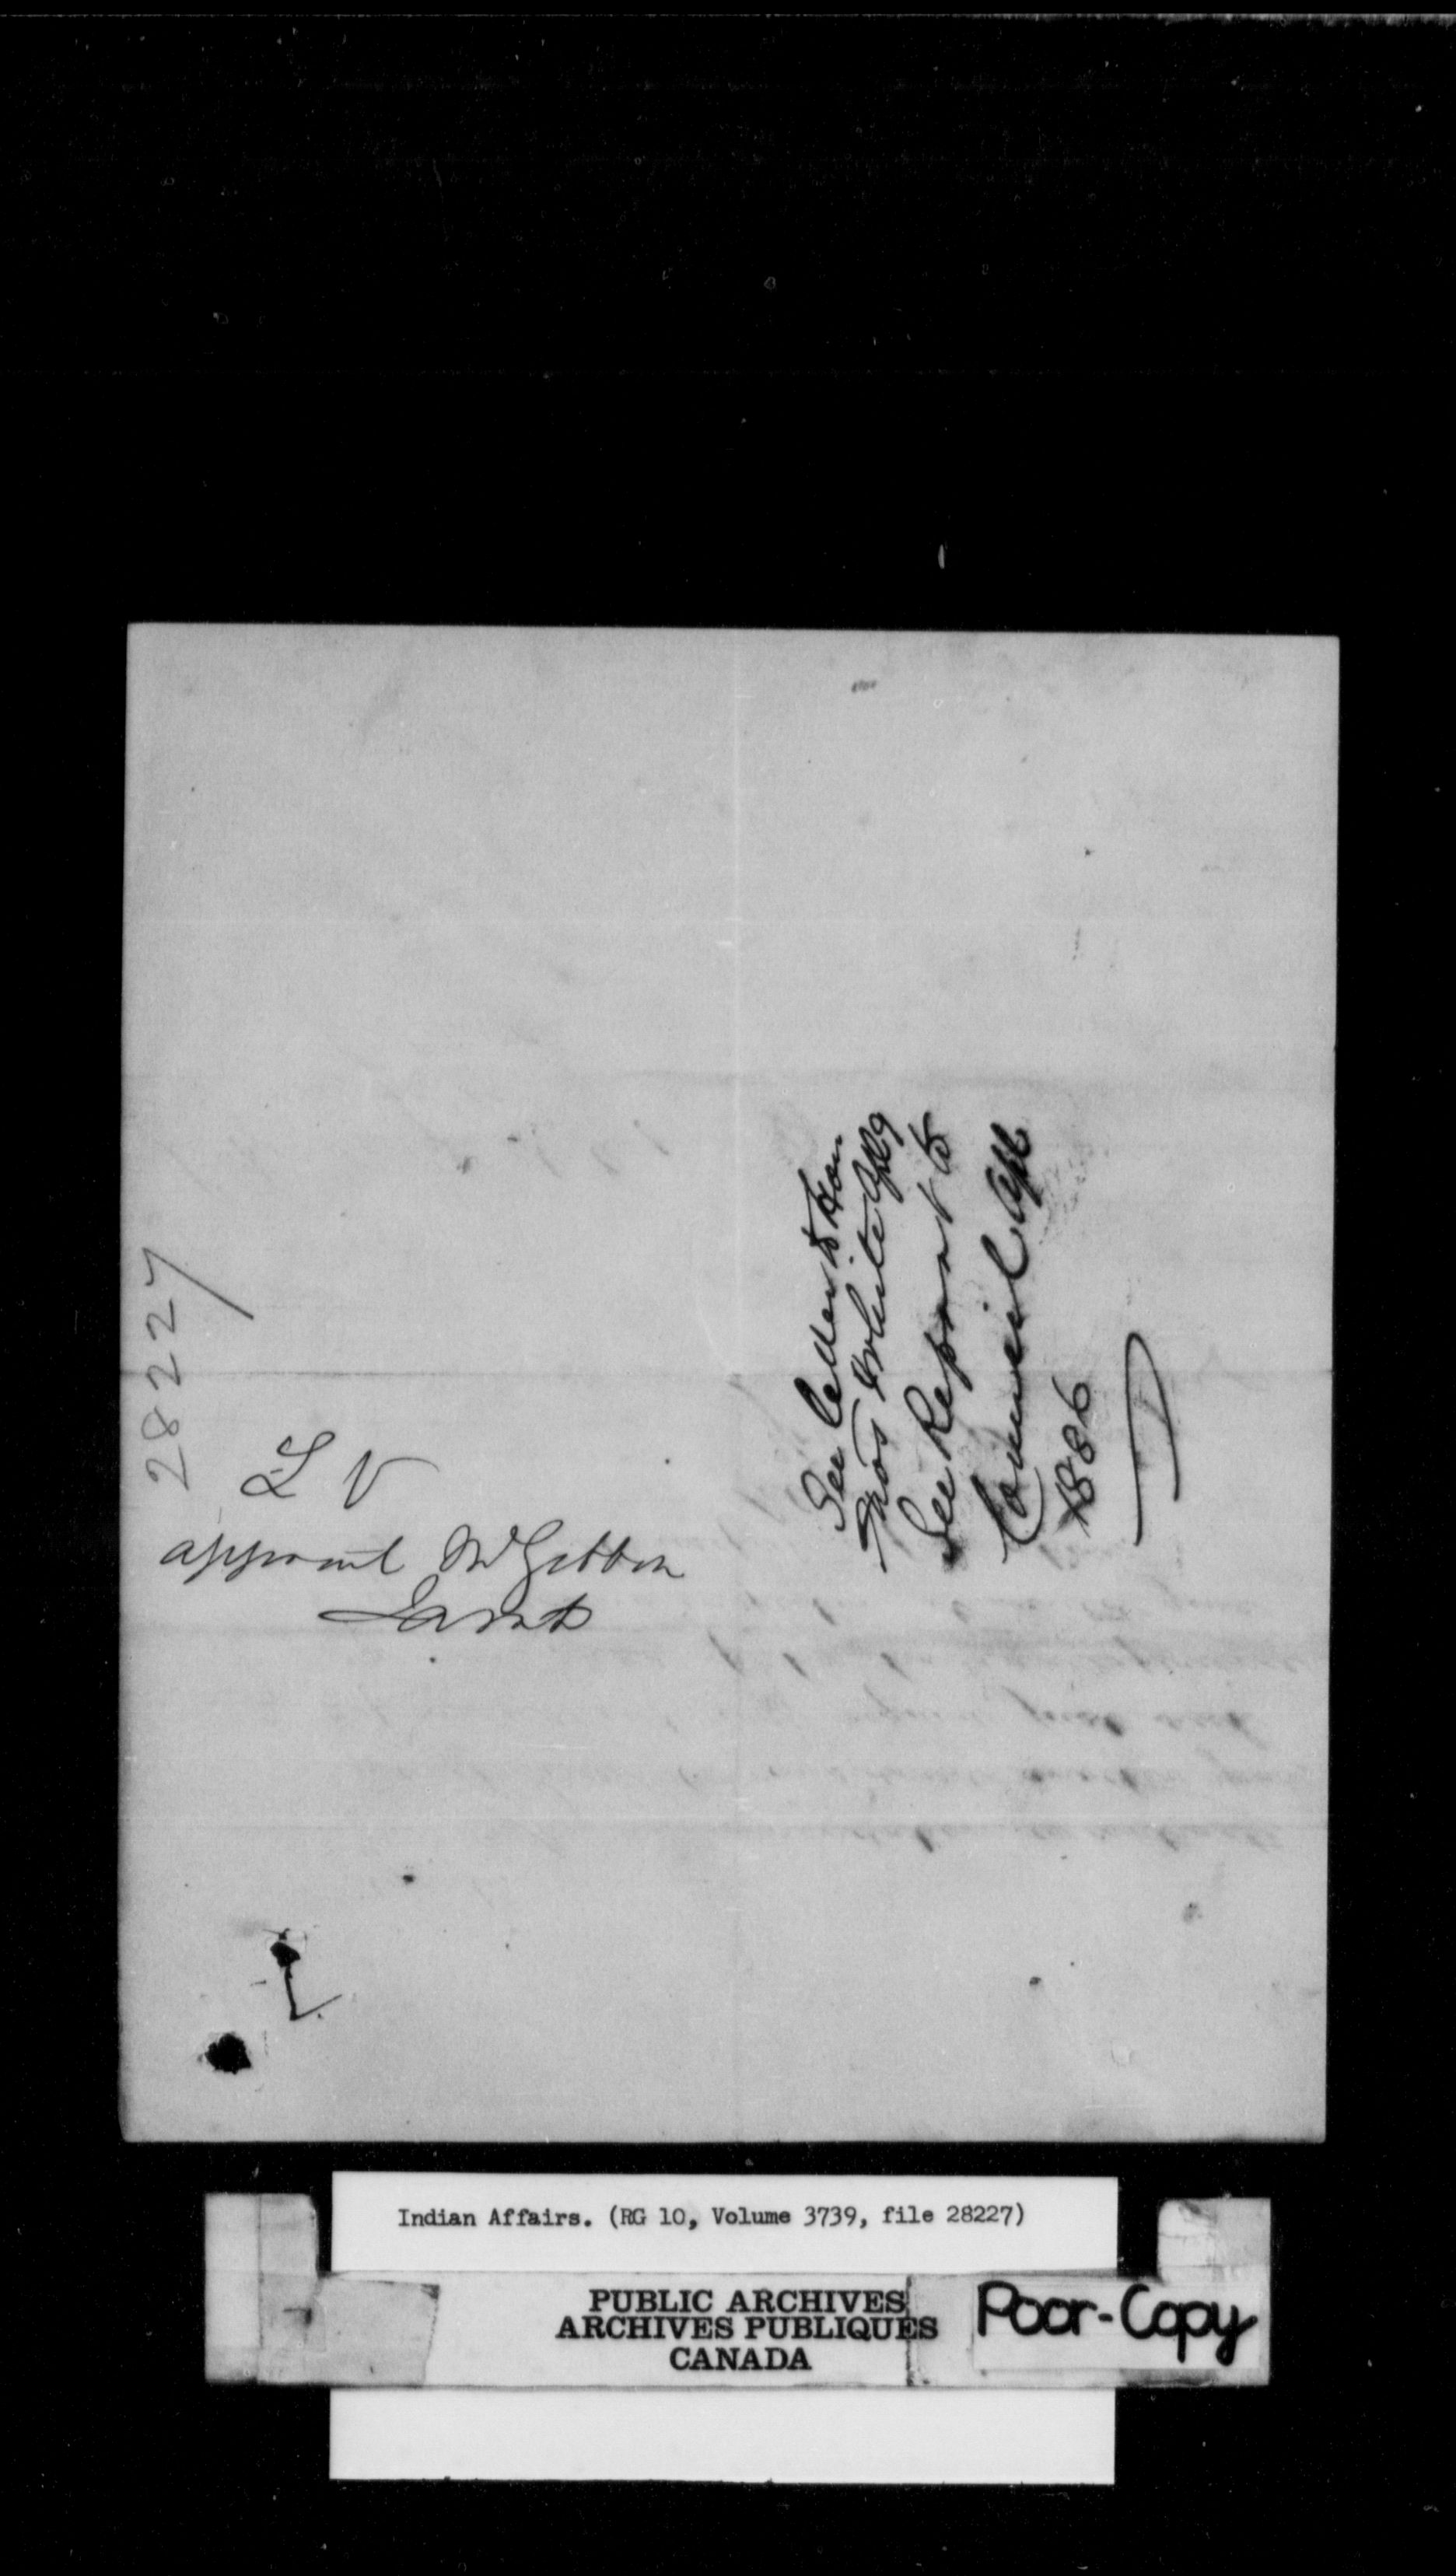 28227
L V
appoint McGibbon
See Letter to Hon
Thos White Apl 9
See Report to
Council Apl
1886
Indian Affairs. (RG 10, Volume 3739, file 28227)
PUBLIC ARCHIVES
ARCHIVES PUBLIQUES
CANADA
Poor-Copy